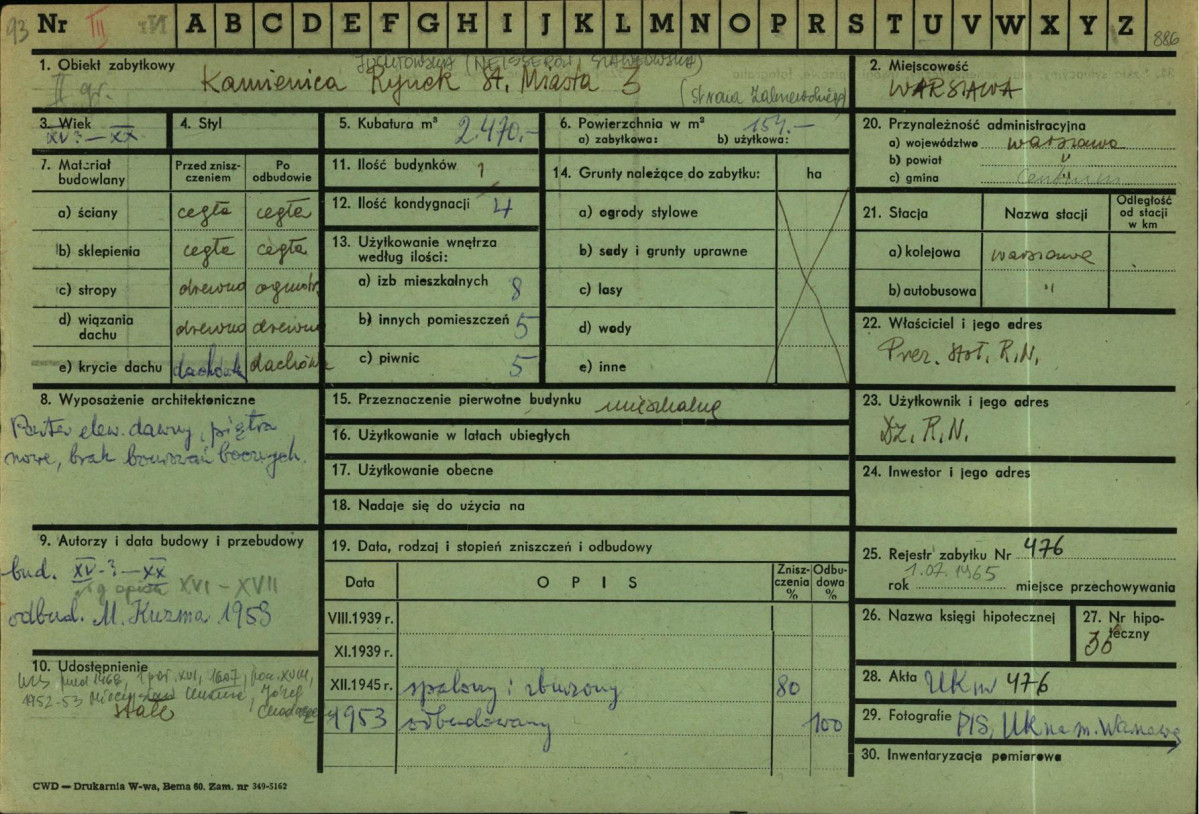 93 Nr III A B C D E F G H I J K L M N O P R S T U V W X Y Z 886
1. Obiekt zabytkowy
II gr.
Kamienica Rynek St. Miasta 3
(strona Zakrzewskiego)
2. Miejscowość
WARSZAWA
3. Wiek
XV ? – XX
4. Styl
5. Kubatura m³ 2.470.-
6. Powierzchnia w m² 154.-
a) zabytkowa: b) użytkowa:
20. Przynależność administracyjna
a) województwo warszawa
b) powiat "
c) gmina "
7. Materiał budowlany
Przed zniszczeniem
Po odbudowie
a) ściany cegła cegła
b) sklepienia cegła cegła
c) stropy drewno ogniotr.
d) wiązania dachu drewno drewno
e) krycie dachu dachówk dachówka
11. Ilość budynków 1
12. Ilość kondygnacji 4
13. Użytkowanie wnętrza według ilości:
a) izb mieszkalnych 8
b) innych pomieszczeń 5
c) piwnic 5
14. Grunty należące do zabytku: ha
a) ogrody stylowe
b) sady i grunty uprawne
c) lasy
d) wody
e) inne
21. Stacja Nazwa stacji Odległość od stacji w km
a) kolejowa warszawa
b) autobusowa "
22. Właściciel i jego adres
Prez. Stoł. R.N.
8. Wyposażenie architektoniczne
Parter elew. dawny, piętra
nowe, brak
15. Przeznaczenie pierwotne budynku mieszkalne
16. Użytkowanie w latach ubiegłych
17. Użytkowanie obecne
18. Nadaje się do użycia na
23. Użytkownik i jego adres
Dz. R.N.
24. Inwestor i jego adres
9. Autorzy i data budowy i przebudowy
bud. XV-? – XX
XVI – XVII
odbud. M. Kuzma 1953
10. Udostępnienie
1 poł. XVI, 1607, poł. XVIII,
1952-53 Mieczysław Kuzma, Józef
stałe
19. Data, rodzaj i stopień zniszczeń i odbudowy
Data OPIS Zniszczenia % Odbudowa %
VIII.1939 r.
XI.1939 r.
XII.1945 r. spalony i zburzony 80
1953 odbudowany 100
25. Rejestr zabytku Nr 476
1.07.1965
rok miejsce przechowywania
26. Nazwa księgi hipotecznej
27. Nr hipoteczny
36
28. Akta UKm 476
29. Fotografie PIS, UK na m. Warszawę
30. Inwentaryzacja pomiarowa
CWD — Drukarnia W-wa, Bema 60. Zam. nr 349-5162